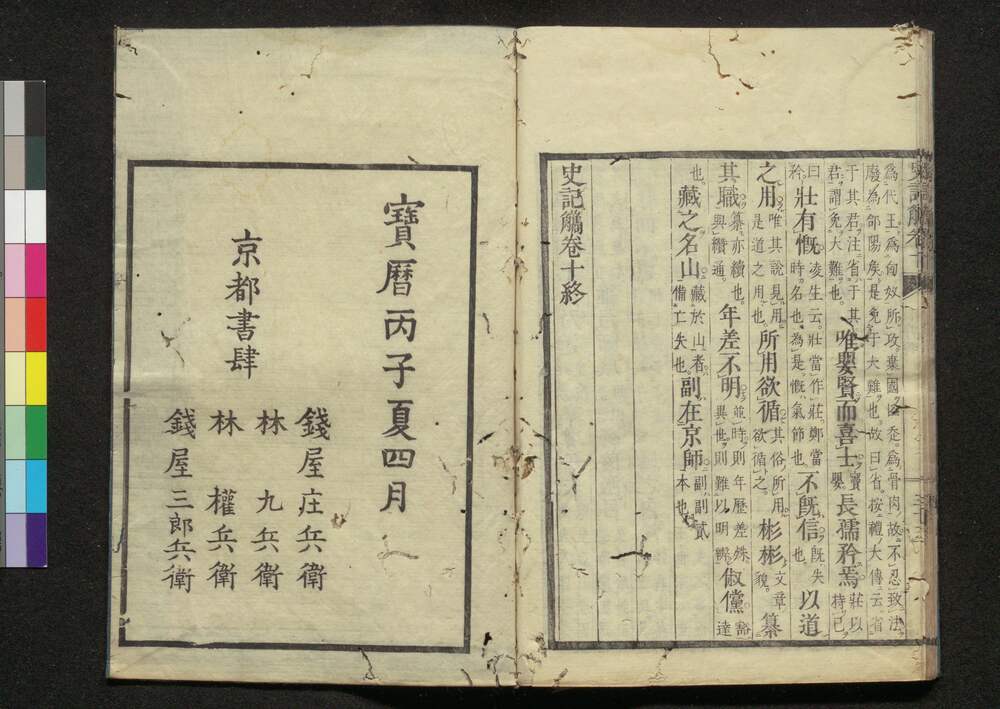 爲代王爲匈奴所攻棄國
廢爲郃陽矦是免于大難也故曰省按禮大傳云省
于其君注省于其
君謂免大難也唯嬰賢而喜士竇嬰長孺矜焉莊以
矜持己
曰壯有慨凌生云壯當作莊鄭當
時名也為是慨氣節也不既信既失也以道
之用唯其說見用
是道之用也所用欲循其俗所用
欲循之彬彬文章貌纂
其職纂亦續也
與纘通年差不明並時則年歷差殊
異世則難以明辨俶儻豁達
也藏之名山藏於山者
備亡失也副在京師副副貳
本也
史記觿卷十終
寶曆丙子夏四月
京都書肆
錢屋庄兵衛
林九兵衛
林權兵衛
錢屋三郎兵衛